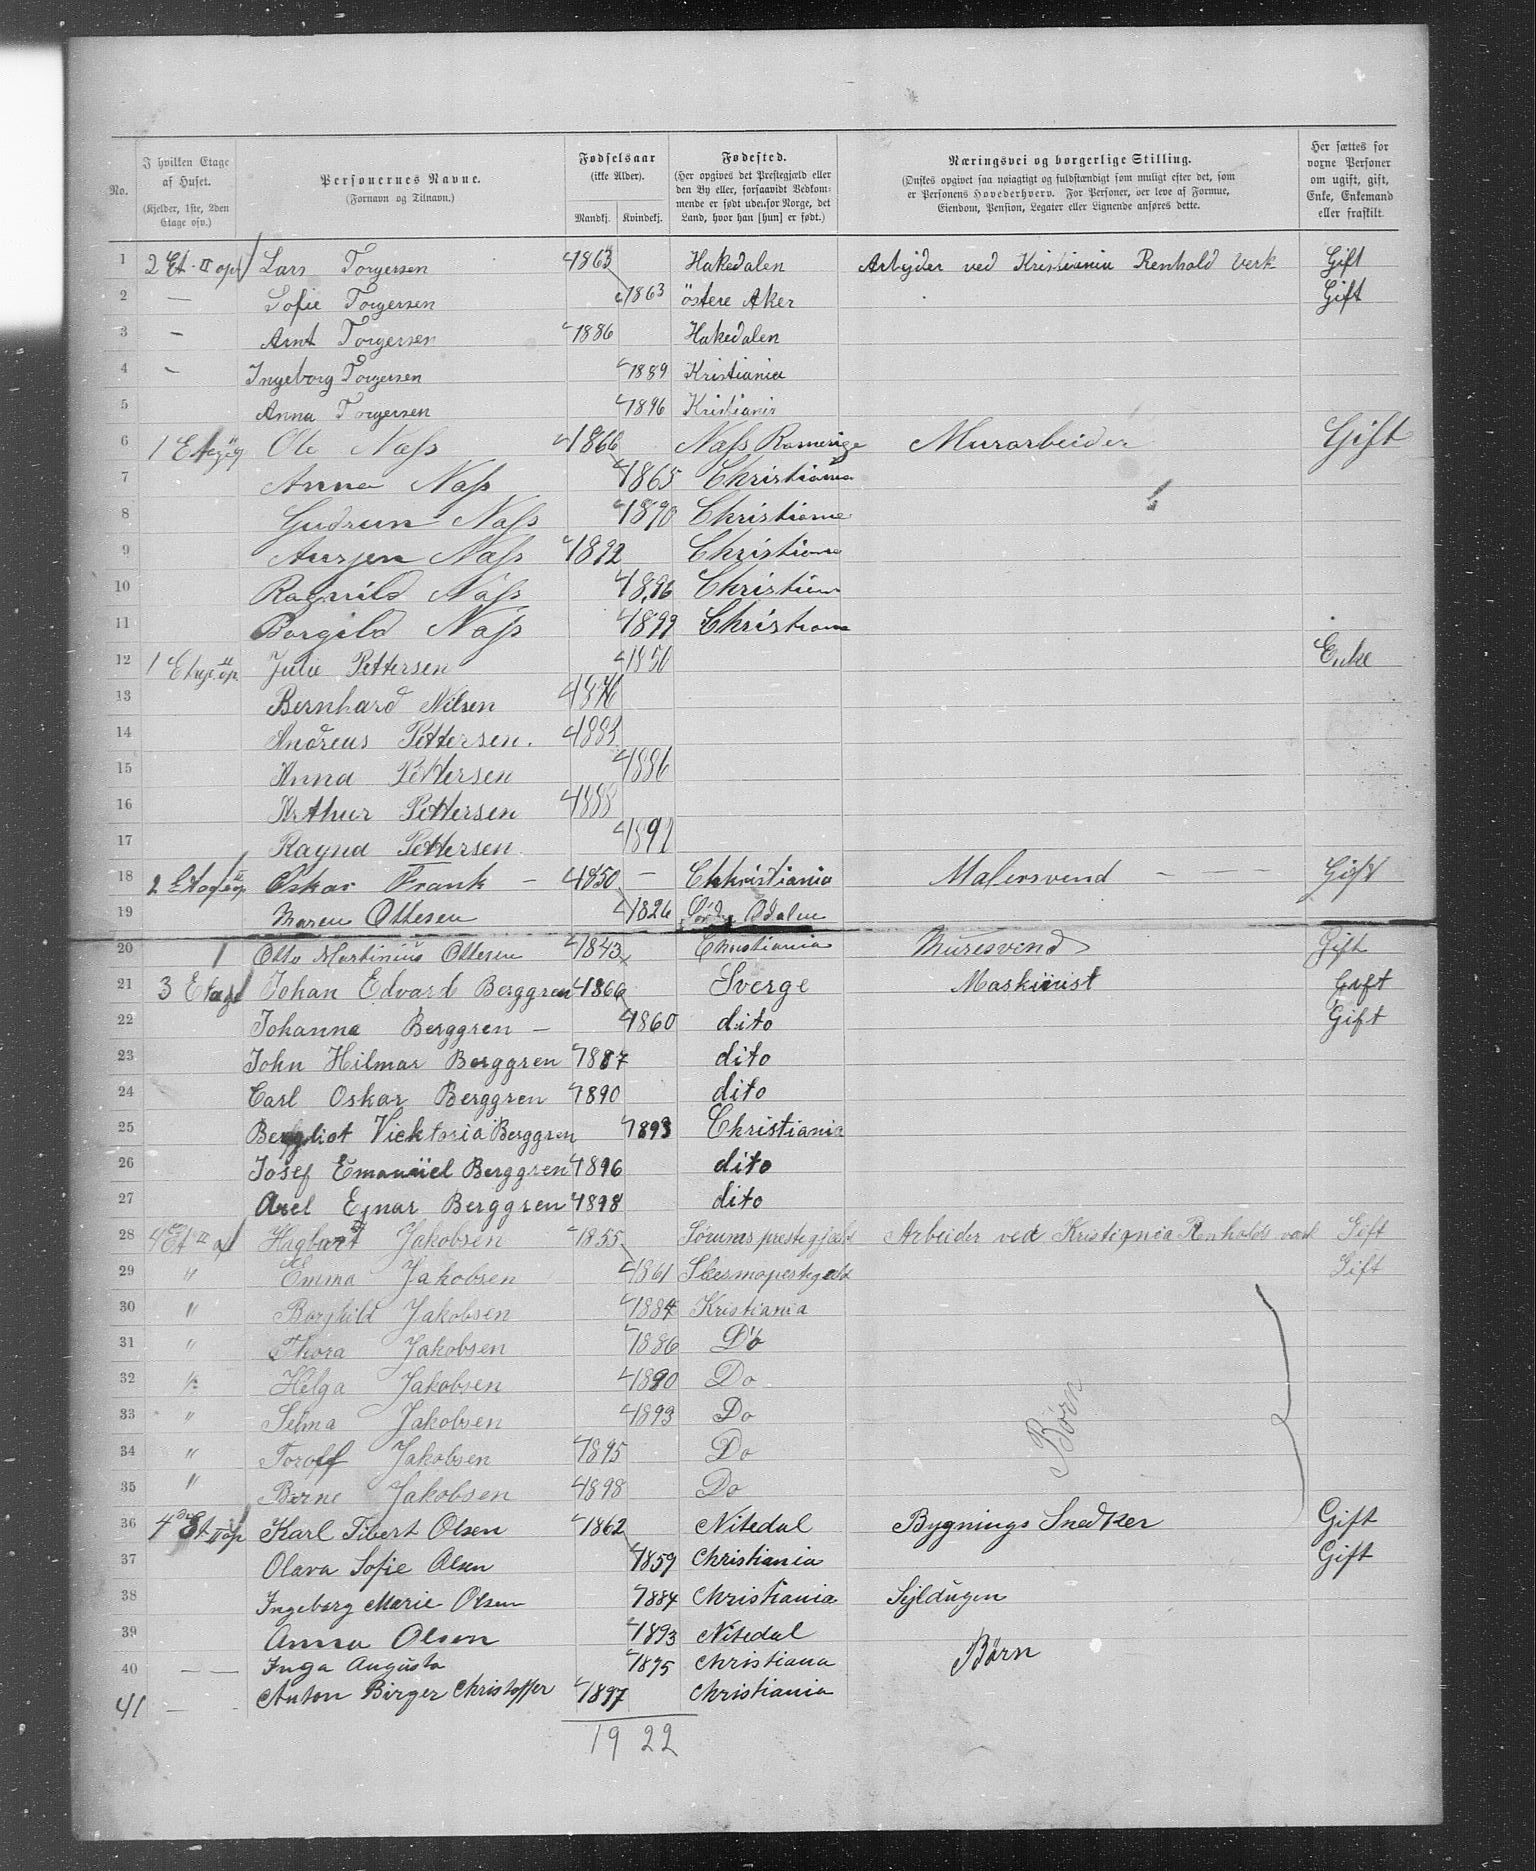 No. | I hvilken Etage af Huset. (Kjelder, 1ste, 2den Etage osv.) | Personernes Navne. (Fornavn og Tilnavn.) | Fødselsaar (ikke Alder). Mandkj. Kvindekj. | Fødested. (Her opgives det Prestegjæld eller den By eller, forsaavidt Vedkommende er født udenfor Norge, det Land, hvor han [hun] er født.) | Næringsvei og borgerlige Stilling. (Ønskes opgivet saa nøiagtigt og fuldstændigt som muligt efter det, som er Personens Hovederhverv. For Personer, der leve af Formue, Eiendom, Pension, Legater eller Lignende anføres dette. | Her sættes for voxne Personer om ugift, gift, Enke, Enkemand eller fraskilt.
1 2 Et. II op Lars Torgersen 1863 Hakedalen Arbejder ved Kristiania Renhold Verk Gift
2 — Sofie Torgersen 1863 östere Aker Gift
3 — Arnt Torgersen 1886 Hakedalen
4 — Ingeborg Torgersen 1889 Kristiania
5 Anna Torgersen 1896 Kristiania
6 1 Etage Ole Næss 1866 Næss Romerige Murarbeider Gift
7 Anna Næss 1865 Christiania
8 Gudrun Næss 1890 Christiania
9 Næss 1892 Christiania
10 Ragnild Næss 1896 Christiania
11 Borgild Næss 1899 Christiania
12 1 Etage II op. Julie Pettersen 1850 Enke
13 Bernhard Nilsen 1876
14 Andreas Pettersen. 1883
15 Anna Pettersen 1886
16 Arthur Pettersen 1888
17 Ragna Pettersen 1891
18 2 Etage II op Oskar Frank — 1850 — Chhristiania Malersvend — — — Gift
19 Maren Ottesen 1826 Søndre Odalen
20 Otto Martinius Ottesen 1843 Christiania Muresvend Gift
21 3 Etage Johan Edvard Berggren 1866 Sverge Maskinist Gift
22 Johanna Berggren — 1860 dito Gift
23 John Hilmar Berggren 1887 dito
24 Carl Oskar Berggren 1890 dito
25 Bergliot Vicktoria Berggren 1893 Christiania
26 Josef Emanuel Berggren 1896 dito
27 Axel Ejnar Berggren 1898 dito
28 4 Et II op Hagbart Jakobsen 1855 Sørums prestegjæld Arbeider ved Kristiania Renholds verk Gift
29 " Emma Jakobsen 1861 Gift
30 " Borghild Jakobsen 1884 Kristiania
31 " Thora Jakobsen 1886 Do
32 " Helga Jakobsen 1890 Do
33 " Selma Jakobsen 1893 Do
Børn
34 " Torolf Jakobsen 1895 Do
35 " Jakobsen 1898 Do
36 4de Et II op Karl Tibert Olsen 1862 Nitedal Bygnings Snedker Gift
37 Olava Sofie Olsen 1859 Christiania Gift
38 Ingeborg Marie Olsen 1884 Christiania Sejldugen
39 Anna Olsen 1893 Nitedal
40 — — Inga Augusta 1895 Christiana Børn
41 — Anton Birger Christoffer 1897 Christiania
19 22